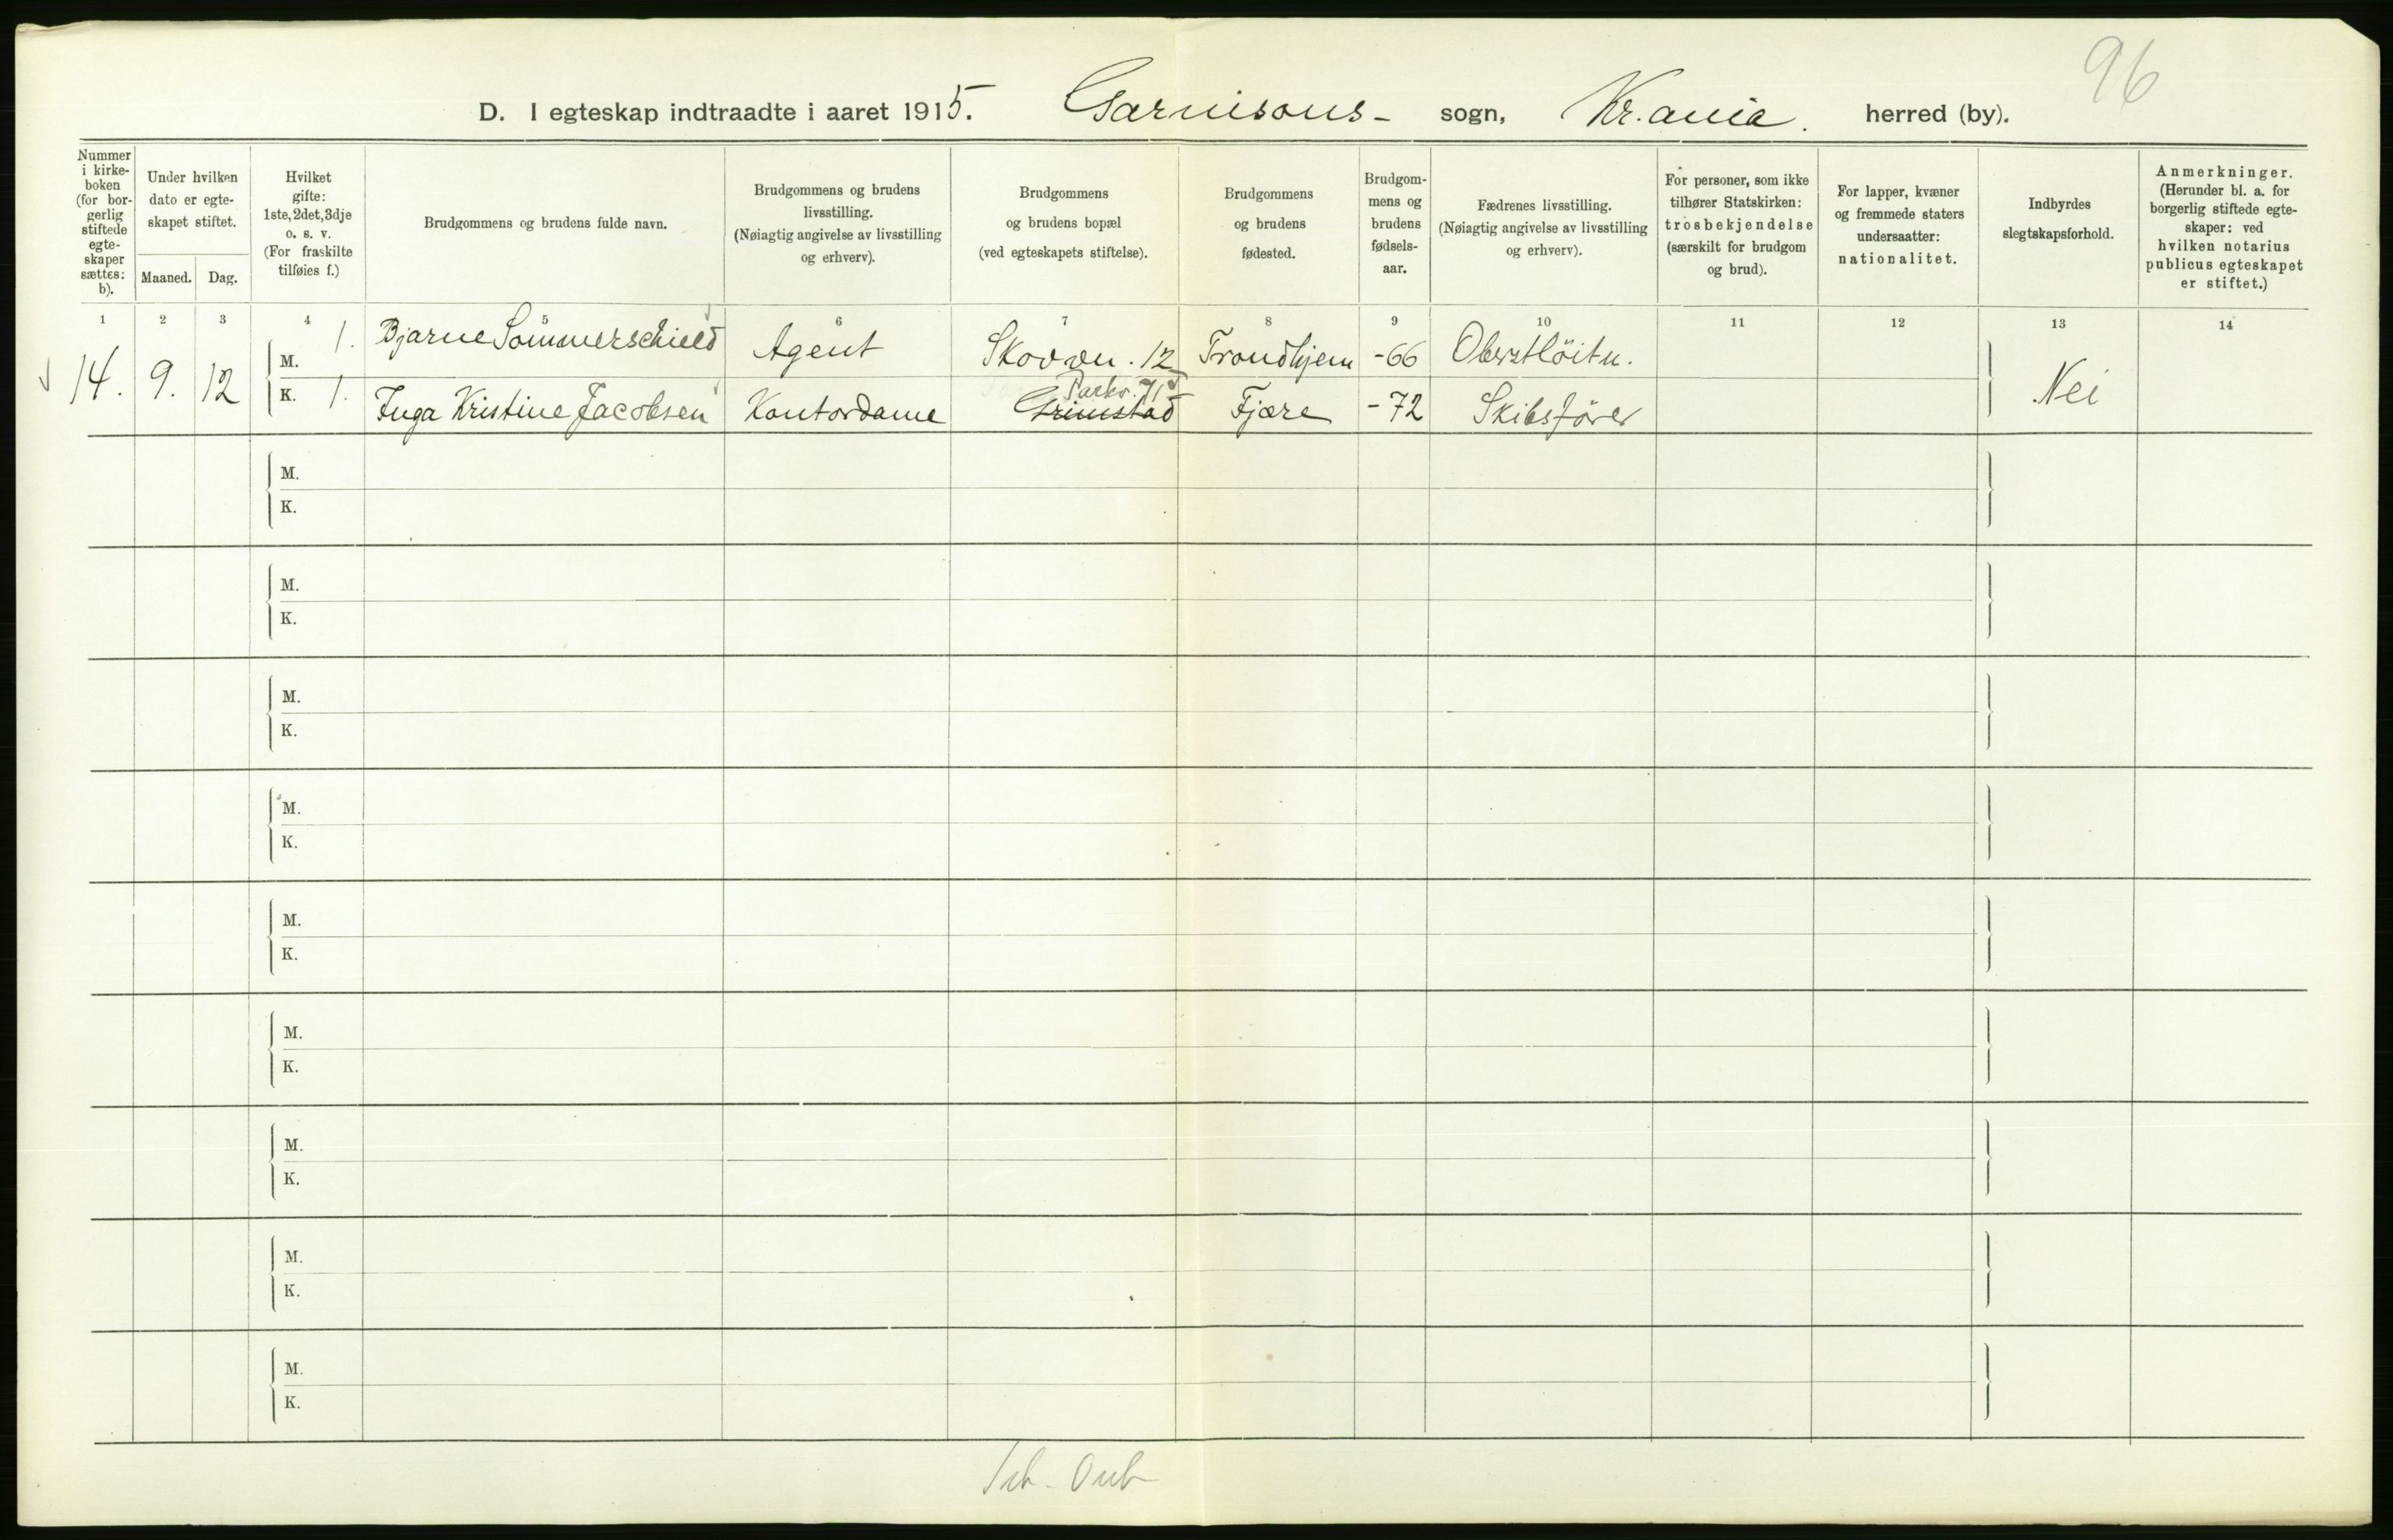 96
D. I egteskap indtraadte i aaret 1915. Garnisons- sogn, Kr.ania. herred (by).
Nummer i kirke-boken (for bor-gerlig stiftede egte-skaper sættes: b).
Under hvilken dato er egte-skapet stiftet.
Maaned. Dag.
Hvilket gifte: 1ste, 2det, 3dje o. s. v. (For fraskilte tilføies f.)
Brudgommens og brudens fulde navn.
Brudgommens og brudens livsstilling. (Nøiagtig angivelse av livsstilling og erhverv).
Brudgommens og brudens bopæl (ved egteskapets stiftelse).
Brudgommens og brudens fødested.
Brudgom-mens og brudens fødsels-aar.
Fædrenes livsstilling. (Nøiagtig angivelse av livsstilling og erhverv).
For personer, som ikke tilhører Statskirken: trosbekjendelse (særskilt for brudgom og brud).
For lapper, kvæner og fremmede staters undersaatter: nationalitet.
Indbyrdes slegtskapsforhold.
Anmerkninger. (Herunder bl. a. for borgerlig stiftede egte-skaper: ved hvilken notarius publicus egteskapet er stiftet.)
1 2 3 4 5 6 7 8 9 10 11 12 13 14
14. 9. 12 M. 1. Bjarne Sommerschield Agent Skovvn. 12 Trondhjem -66 Oberstlöitn. Nei
Parkv. 71
K. 1. Inga Kristine Jacobsen Kontordame Grimstad Fjære -72 Skibsförer
M.
K.
M.
K.
M.
K.
M.
K.
M.
K.
M.
K.
M.
K.
M.
K.
M.
K.